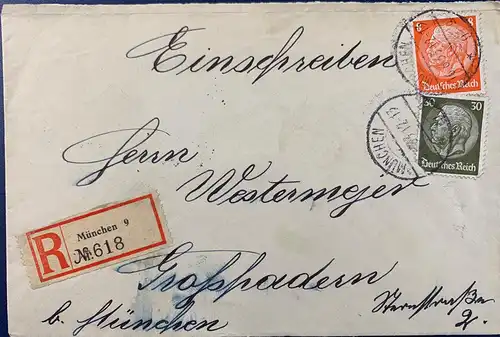 Einschreiben
8
Deutsches Reich
30 30
Deutsches Reich
MÜNCHEN
Herrn
Westermeyer
R
München 9
№ 618
Großhadern
b. München
Sternstraße
2.